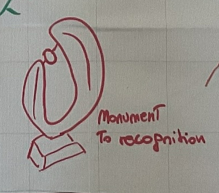 Monument
To recognition